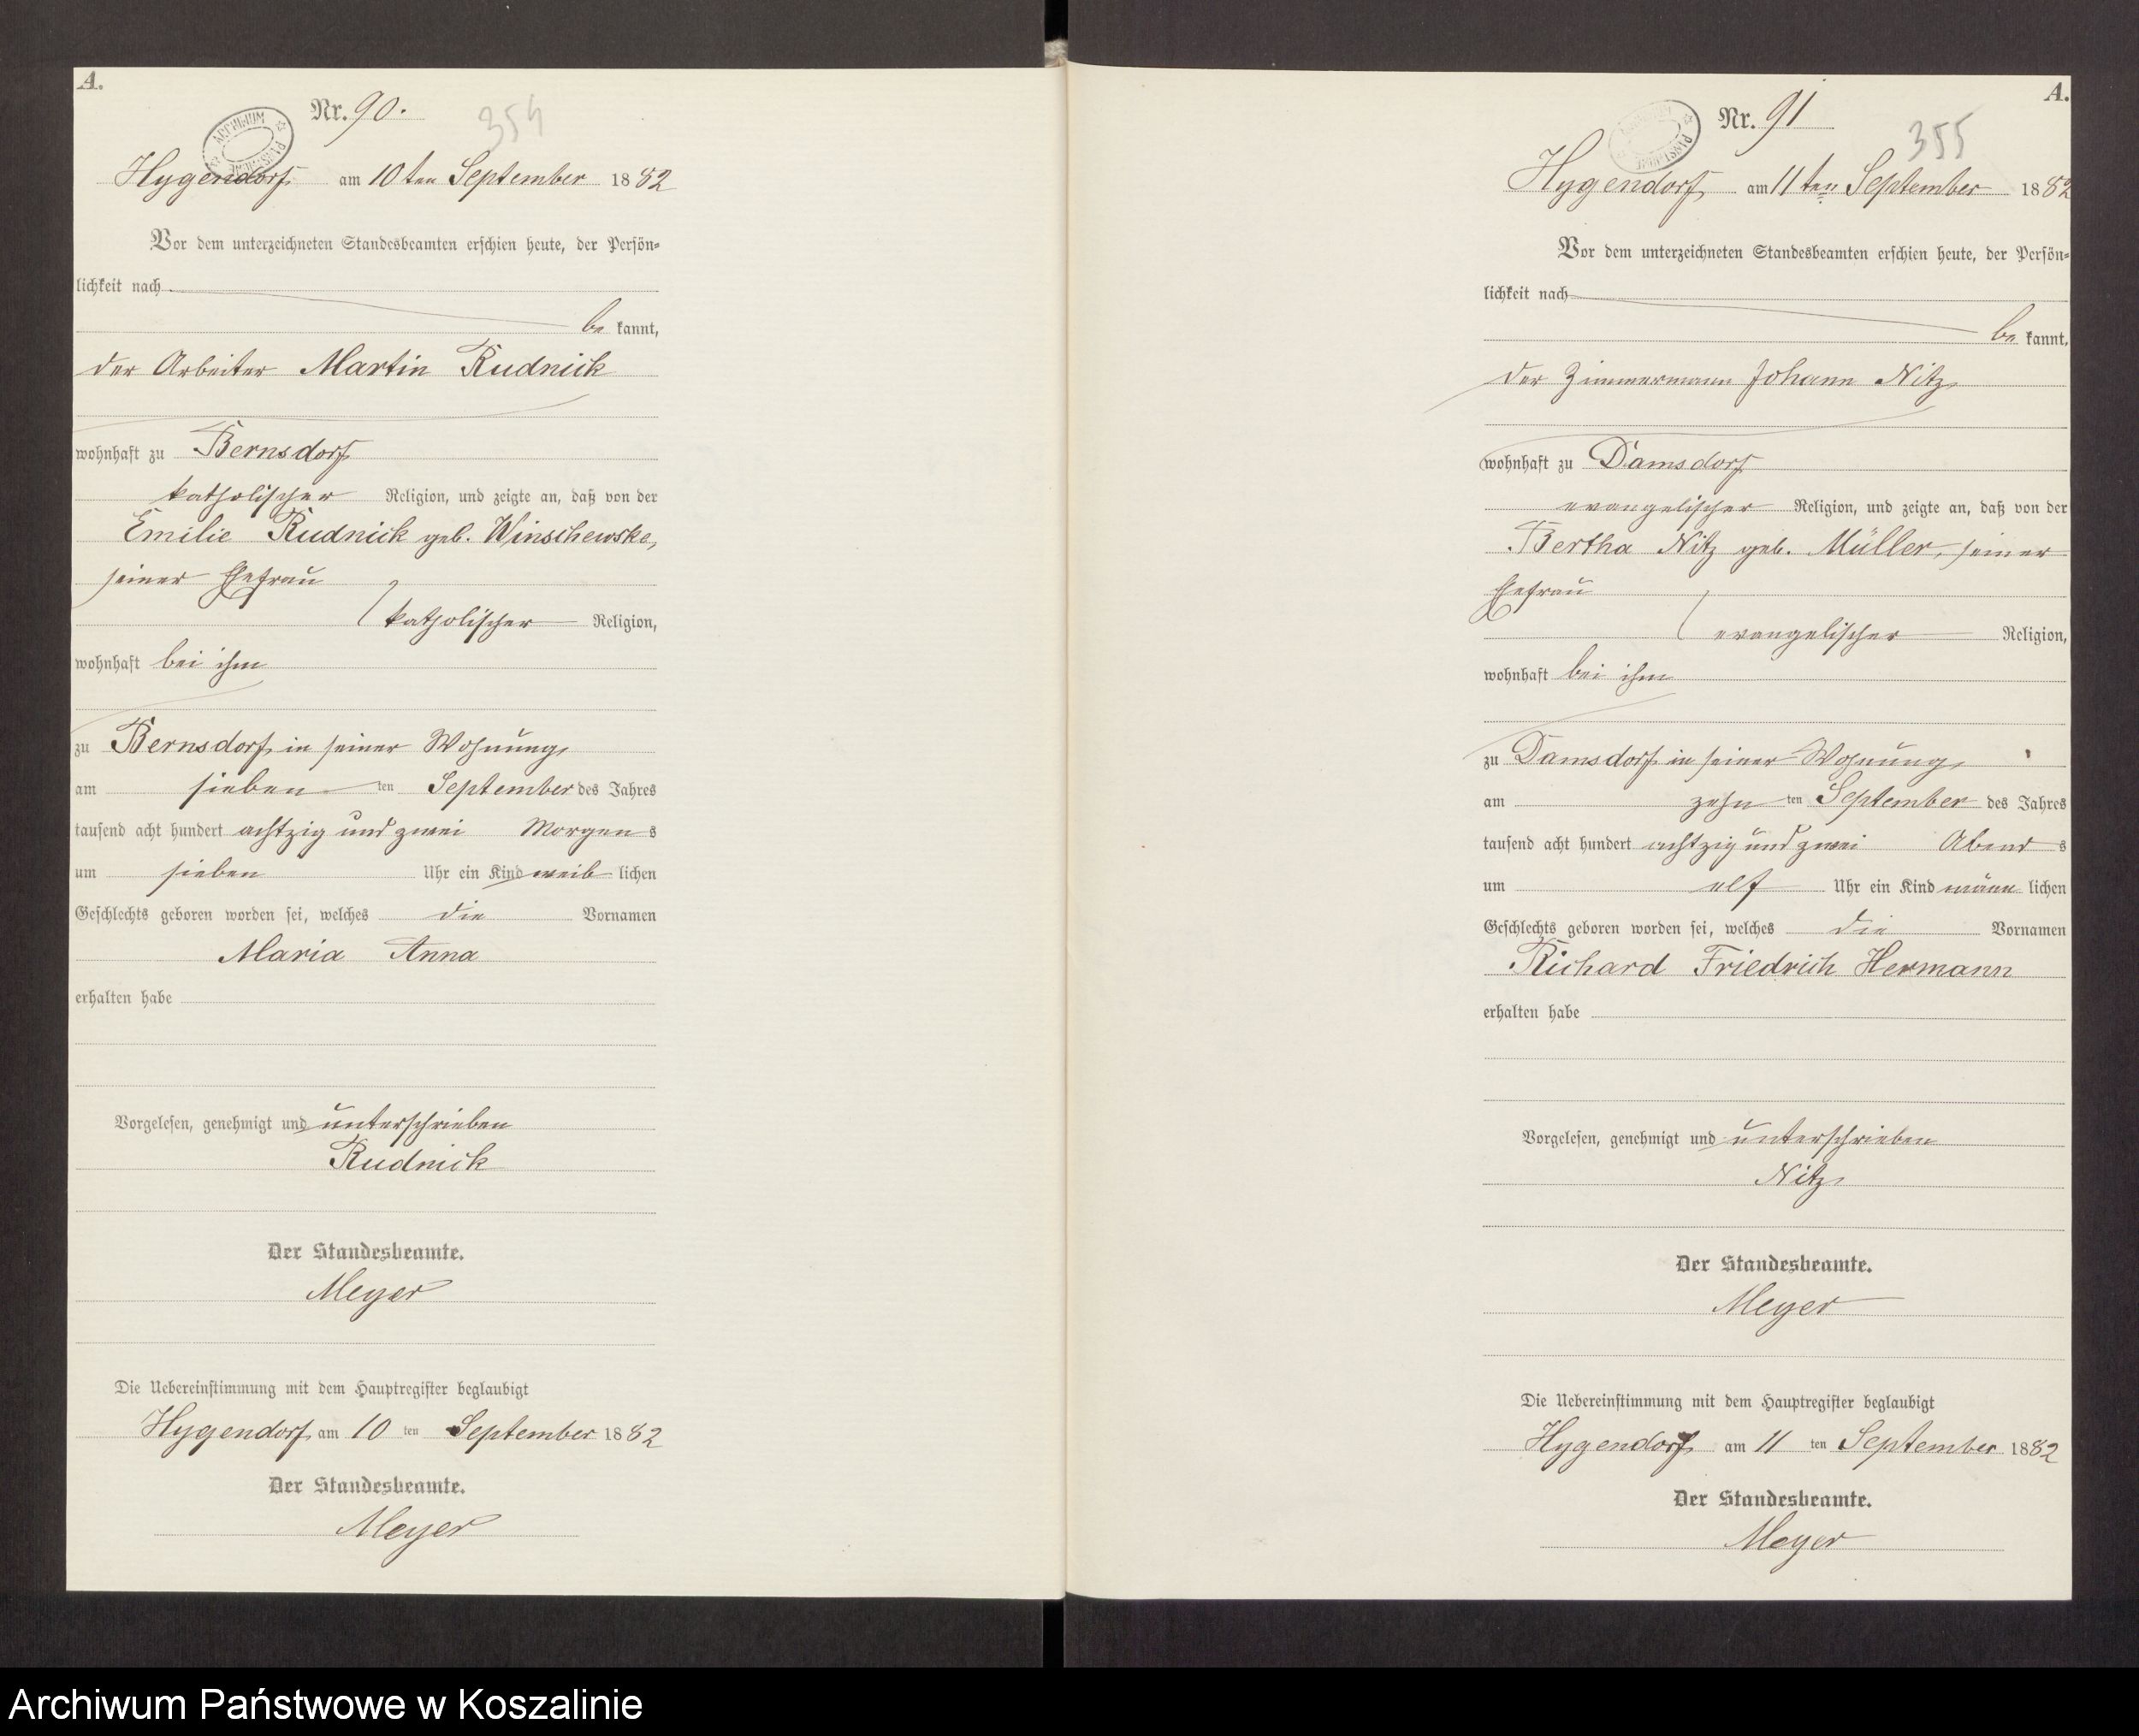 A.
Nr. 90.
354
ARCHIWUM PAŃSTWOWE
Hygendorf am 10ten September 1882
Vor dem unterzeichneten Standesbeamten erschien heute, der Persön-
lichkeit nach
be kannt,
der Arbeiter Martin Rudnick
wohnhaft zu Bernsdorf
katholischer Religion, und zeigte an, daß von der
Emilie Rudnick geb. Winschewske,
seiner Ehefrau
katholischer Religion,
wohnhaft bei ihm
zu Bernsdorf in seiner Wohnung,
am sieben ten September des Jahres
tausend acht hundert achtzig und zwei Morgens
um sieben Uhr ein Kind weib lichen
Geschlechts geboren worden sei, welches die Vornamen
Maria Anna
erhalten habe
Vorgelesen, genehmigt und unterschrieben
Rudnick
Der Standesbeamte.
Meyer
Die Uebereinstimmung mit dem Hauptregister beglaubigt
Hygendorf am 10 ten September 1882
Der Standesbeamte.
Meyer
A.
Nr. 91
355
Hygendorf am 11ten September 1882
Vor dem unterzeichneten Standesbeamten erschien heute, der Persön-
lichkeit nach
be kannt,
der Zimmermann Johann Nitz
wohnhaft zu Damsdorf
evangelischer Religion, und zeigte an, daß von der
Bertha Nitz geb. Müller, seiner
Ehefrau
evangelischer Religion,
wohnhaft bei ihm
zu Damsdorf in seiner Wohnung,
am zehn ten September des Jahres
tausend acht hundert achtzig und zwei Abend s
um elf Uhr ein Kind männ lichen
Geschlechts geboren worden sei, welches die Vornamen
Richard Friedrich Hermann
erhalten habe
Vorgelesen, genehmigt und unterschrieben
Nitz
Der Standesbeamte.
Meyer
Die Uebereinstimmung mit dem Hauptregister beglaubigt
Hygendorf am 11 ten September 1882
Der Standesbeamte.
Meyer
Archiwum Państwowe w Koszalinie